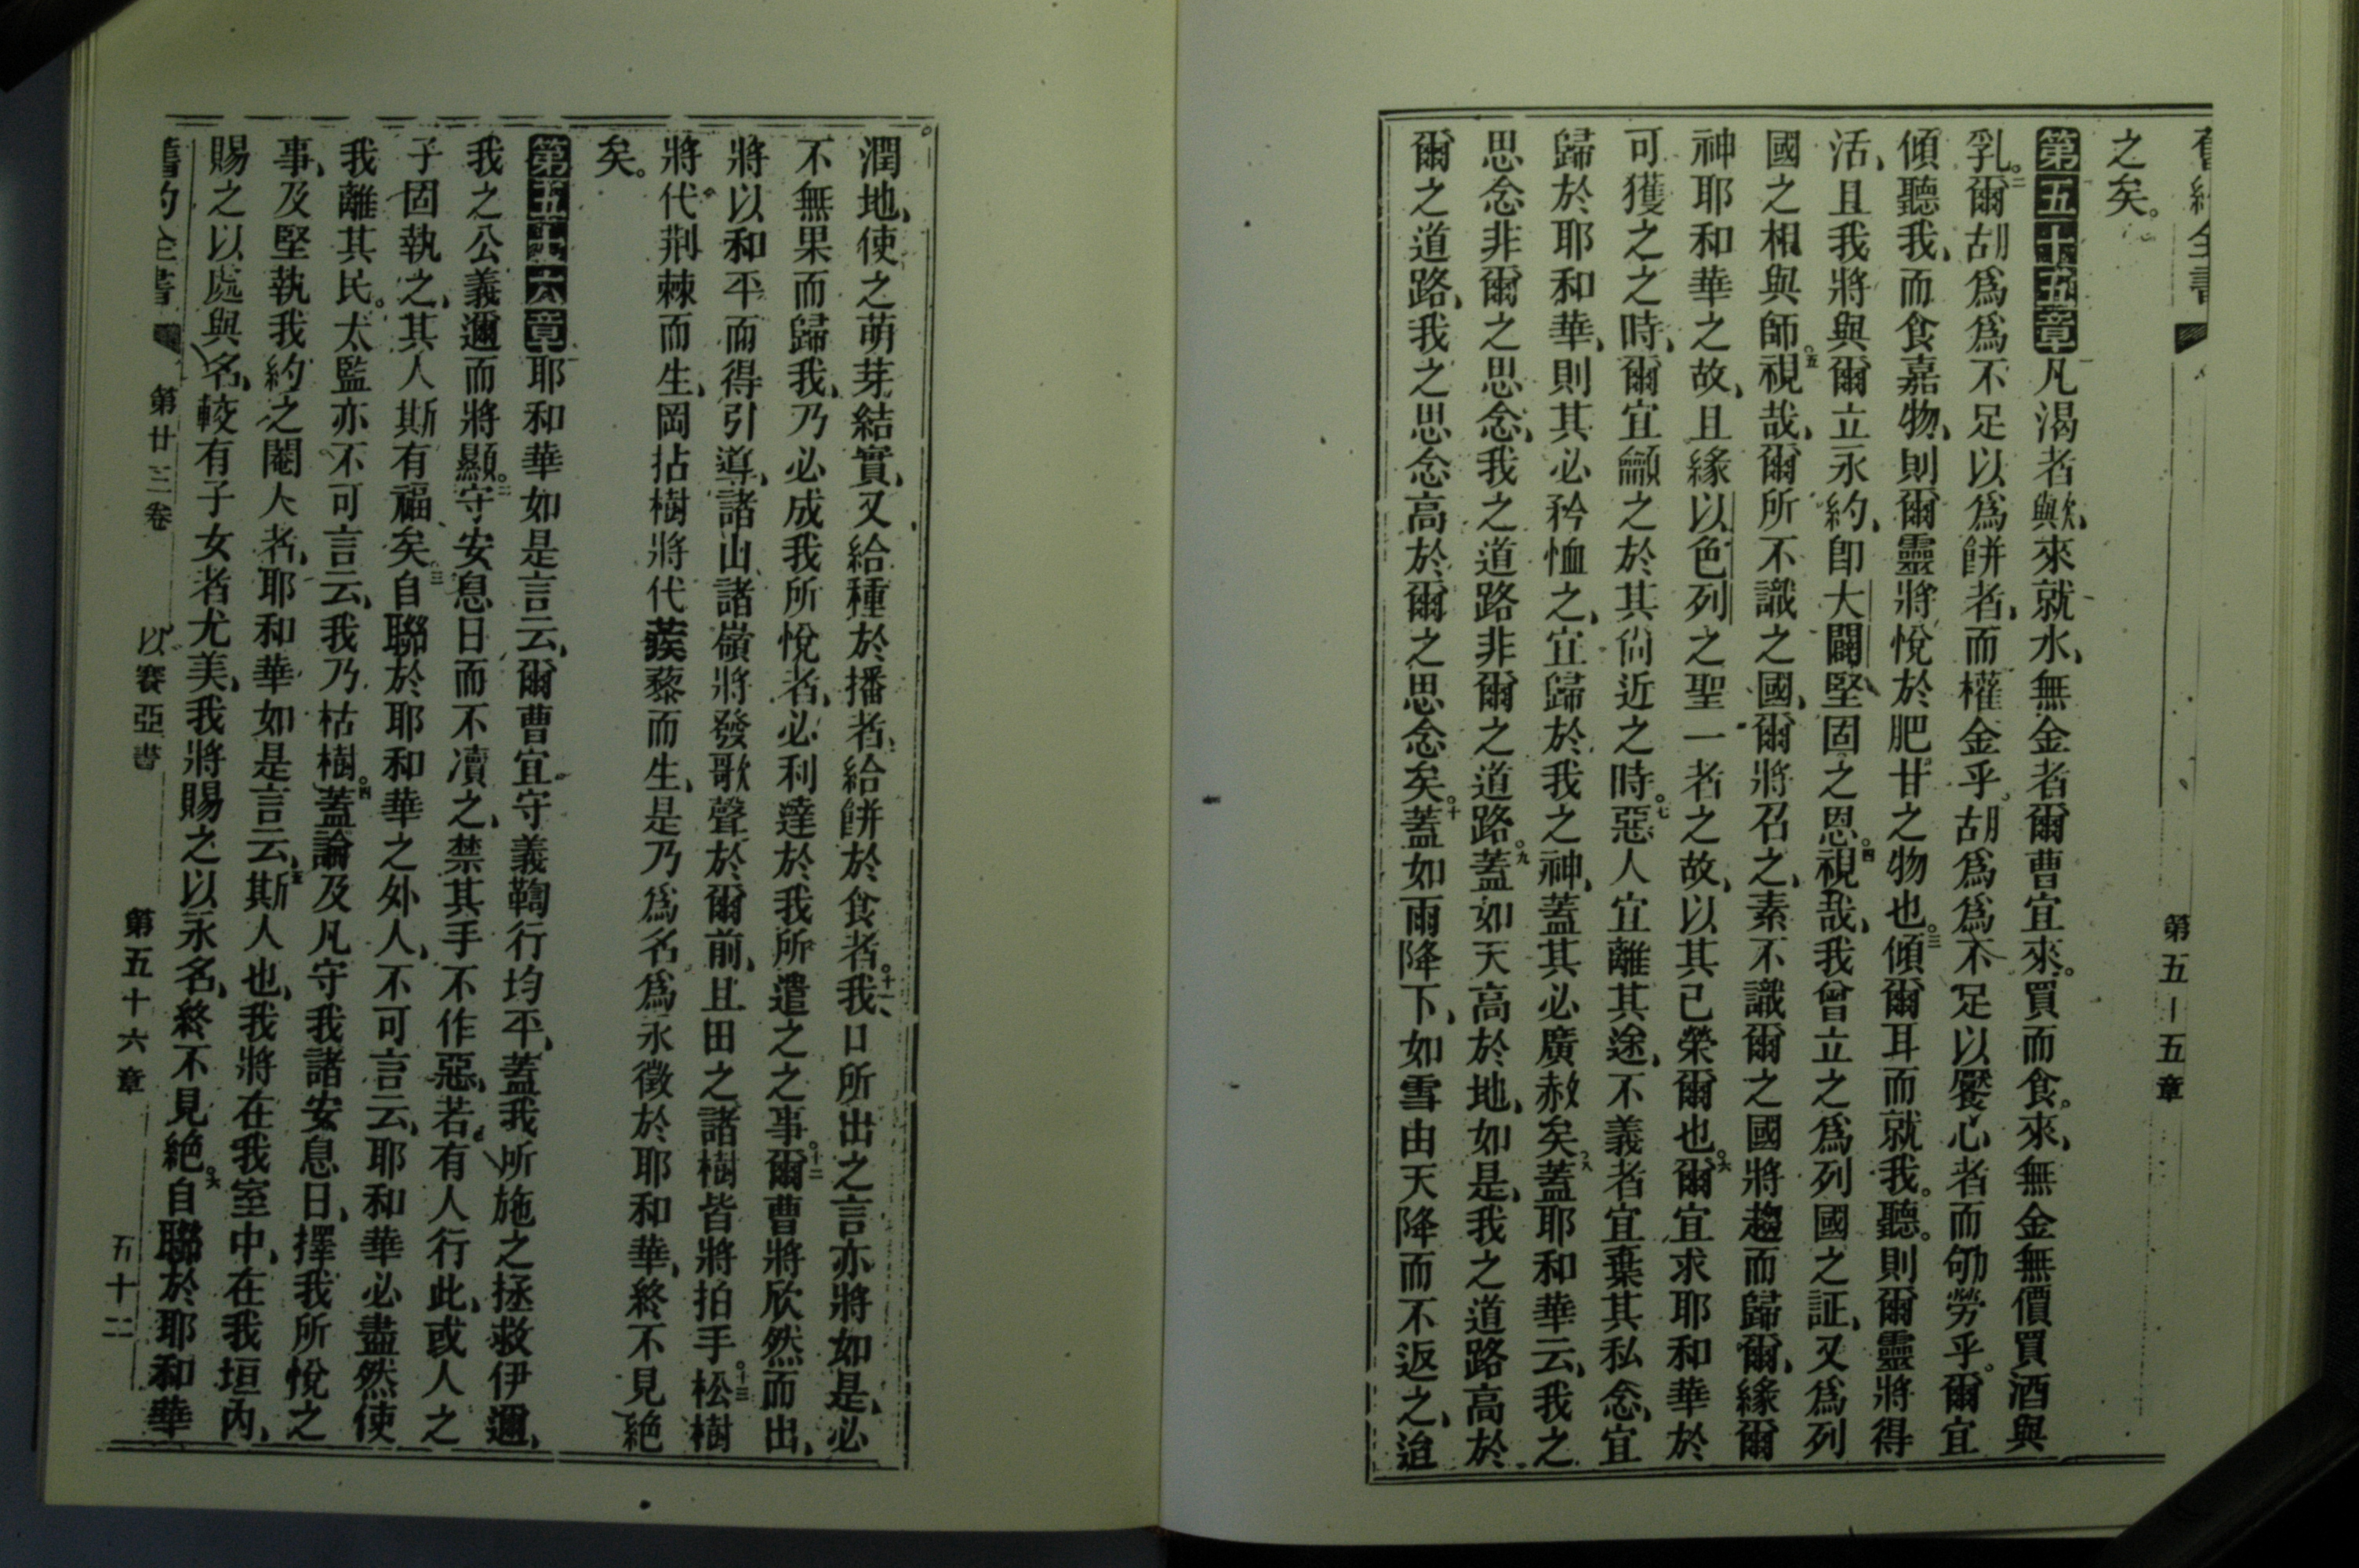 舊約全書 第五十五章
之矣。
第五十五章凡渴者歟、來就水、無金者爾曹宜來。買而食。來、無金無價買酒與
乳。二爾胡爲爲不足以爲餅者、而權金乎。胡爲爲不足以饜心者而劬勞乎。爾宜
傾聽我、而食嘉物、則爾靈將悅於肥甘之物也。三傾爾耳而就我。聽。則爾靈將得
活、且我將與爾立永約、卽大闢堅固之恩。四視哉、我曾立之爲列國之証、又爲列
國之相與師。五視哉、爾所不識之國、爾將召之、素不識爾之國將趨而歸爾、緣爾
神耶和華之故、且緣以色列之聖一者之故、以其已榮爾也。六爾宜求耶和華於
可獲之之時、爾宜籲之於其尙近之時。七惡人宜離其途、不義者宜棄其私念、宜
歸於耶和華、則其必矜恤之、宜歸於我之神、蓋其必廣赦矣。八蓋耶和華云、我之
思念非爾之思念、我之道路非爾之道路。九蓋如天高於地、如是、我之道路高於
爾之道路、我之思念高於爾之思念矣。十蓋如雨降下、如雪由天降而不返之、迨
潤地、使之萌芽結實、又給種於播者、給餅於食者。十一我口所出之言亦將如是、必
不無果而歸我、乃必成我所悅者、必利達於我所遣之之事。十二爾曹將欣然而出、
將以和平而得引導、諸山諸嶺將發歌聲於爾前、且田之諸樹皆將拍手。十三松樹
將代荆棘而生、岡拈樹將代蒺藜而生、是乃爲名爲永徵於耶和華、終不見絕
矣。
第五十六章耶和華如是言云、爾曹宜守義鞫行均平、蓋我所施之拯救伊邇、
我之公義邇而將顯。二守安息日而不瀆之、禁其手不作惡、若有人行此、或人之
子固執之、其人斯有福矣。三自聯於耶和華之外人、不可言云、耶和華必盡然使
我離其民。太監亦不可言云、我乃枯樹。四蓋論及凡守我諸安息日、擇我所悅之
事、及堅執我約之閹人者、耶和華如是言云、五斯人也、我將在我室中、在我垣內、
賜之以處與名、較有子女者尤美、我將賜之以永名、終不見絕。六自聯於耶和華
舊約全書 第廿三卷 以賽亞書 第五十六章 五十二